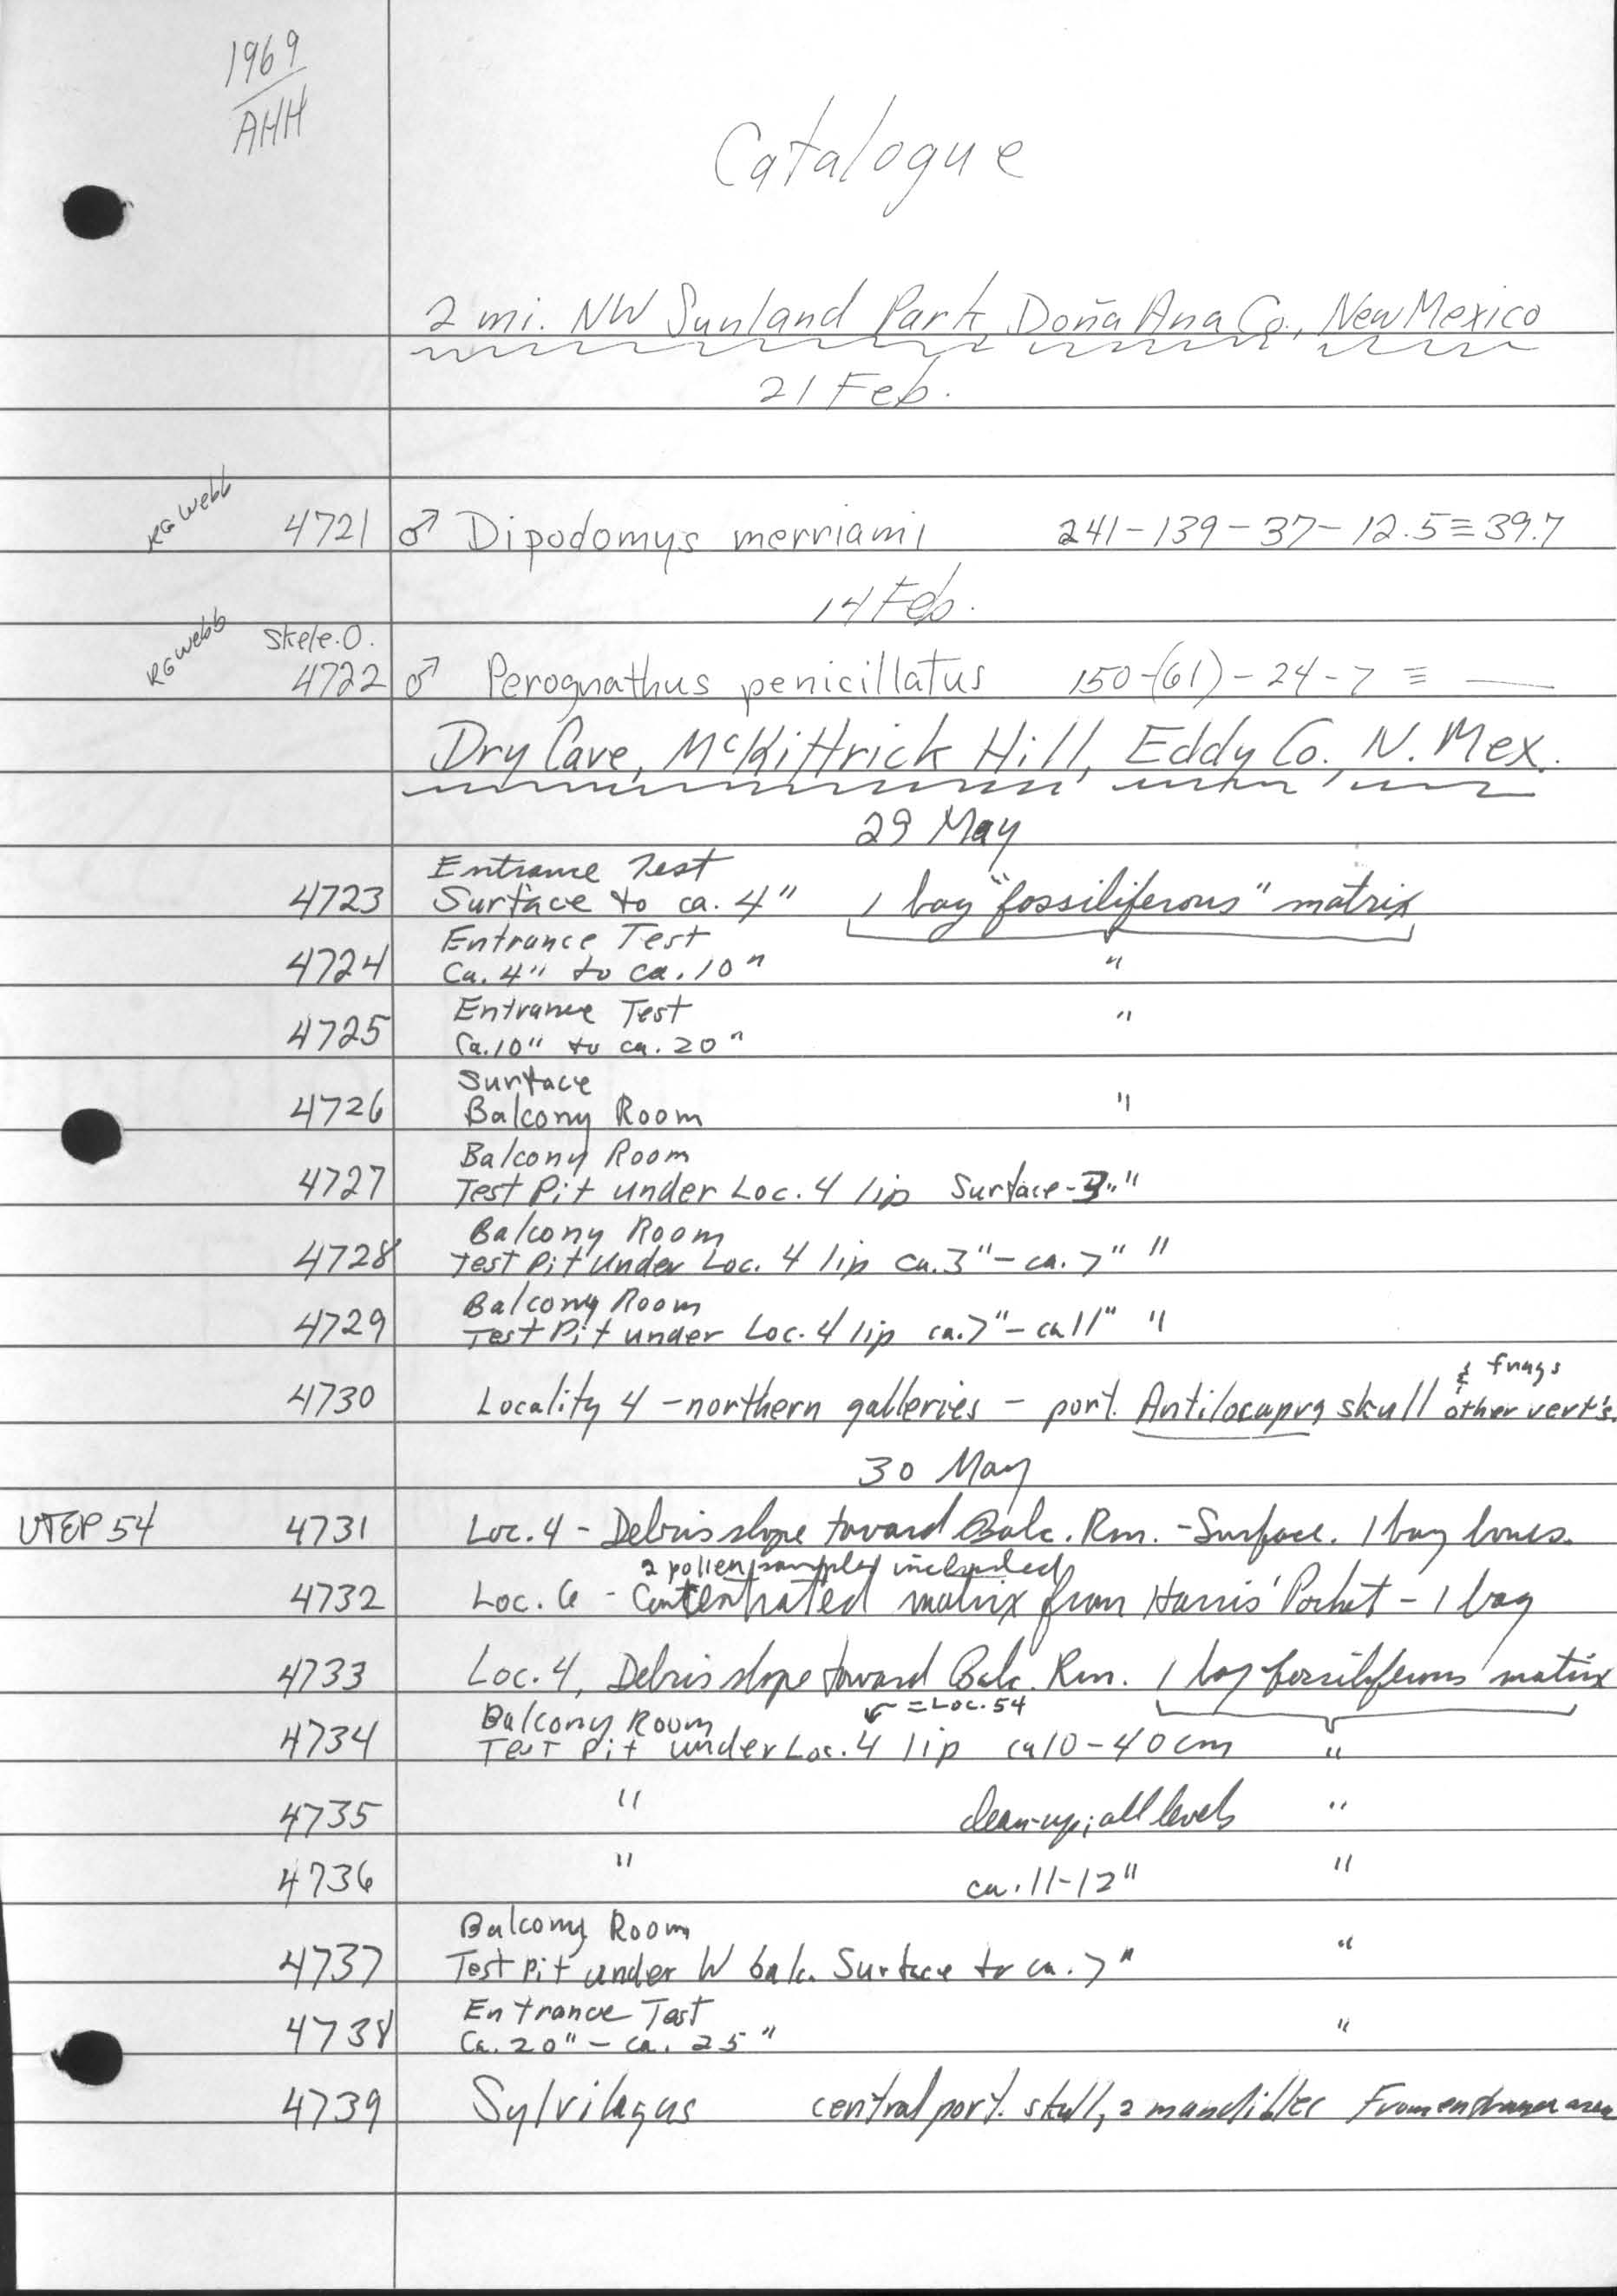 1969
AHH
Catalogue
2 mi. NW Sunland Park, Doña Ana Co., New Mexico
21 Feb.
RG Webb 4721 ♂ Dipodomys merriami 241-139-37-12.5≡39.7
14 Feb.
RG Webb Skele. O.
4722 ♂ Perognathus penicillatus 150-(61)-24-7 ≡ —
Dry Cave, McKittrick Hill, Eddy Co., N. Mex.
29 May
Entrance Test
4723 Surface to ca. 4" 1 bag "fossiliferous" matrix
Entrance Test
4724 Ca. 4" to ca. 10" "
Entrance Test "
4725 Ca. 10" to ca. 20"
Surface
4726 Balcony Room "
Balcony Room
4727 Test Pit under Loc. 4 lip Surface-3" "
Balcony Room
4728 Test Pit under Loc. 4 lip ca. 3"-ca. 7" "
Balcony Room
4729 Test Pit under Loc. 4 lip ca. 7"-ca 11" "
& frags
4730 Locality 4 - northern galleries - port. Antilocapra skull other vert's.
30 May
UTEP 54 4731 Loc. 4 - Debris slope toward Balc. Rm. - Surface. 1 bag bones.
2 pollen samples included
4732 Loc. 6 - Concentrated matrix from Harris' Pocket - 1 bag
4733 Loc. 4, Debris slope toward Balc. Rm. 1 bag fossiliferous matrix
Balcony Room = Loc. 54
4734 Test Pit under Loc. 4 lip ca 10-40 cm "
4735 " clean-up; all levels "
4736 " ca. 11-12" "
Balcony Room
4737 Test pit under W balc. Surface to ca. 7" "
Entrance Test
4738 Ca. 20" - ca. 25" "
4739 Sylvilagus central port. skull, 2 mandibles From entrance area